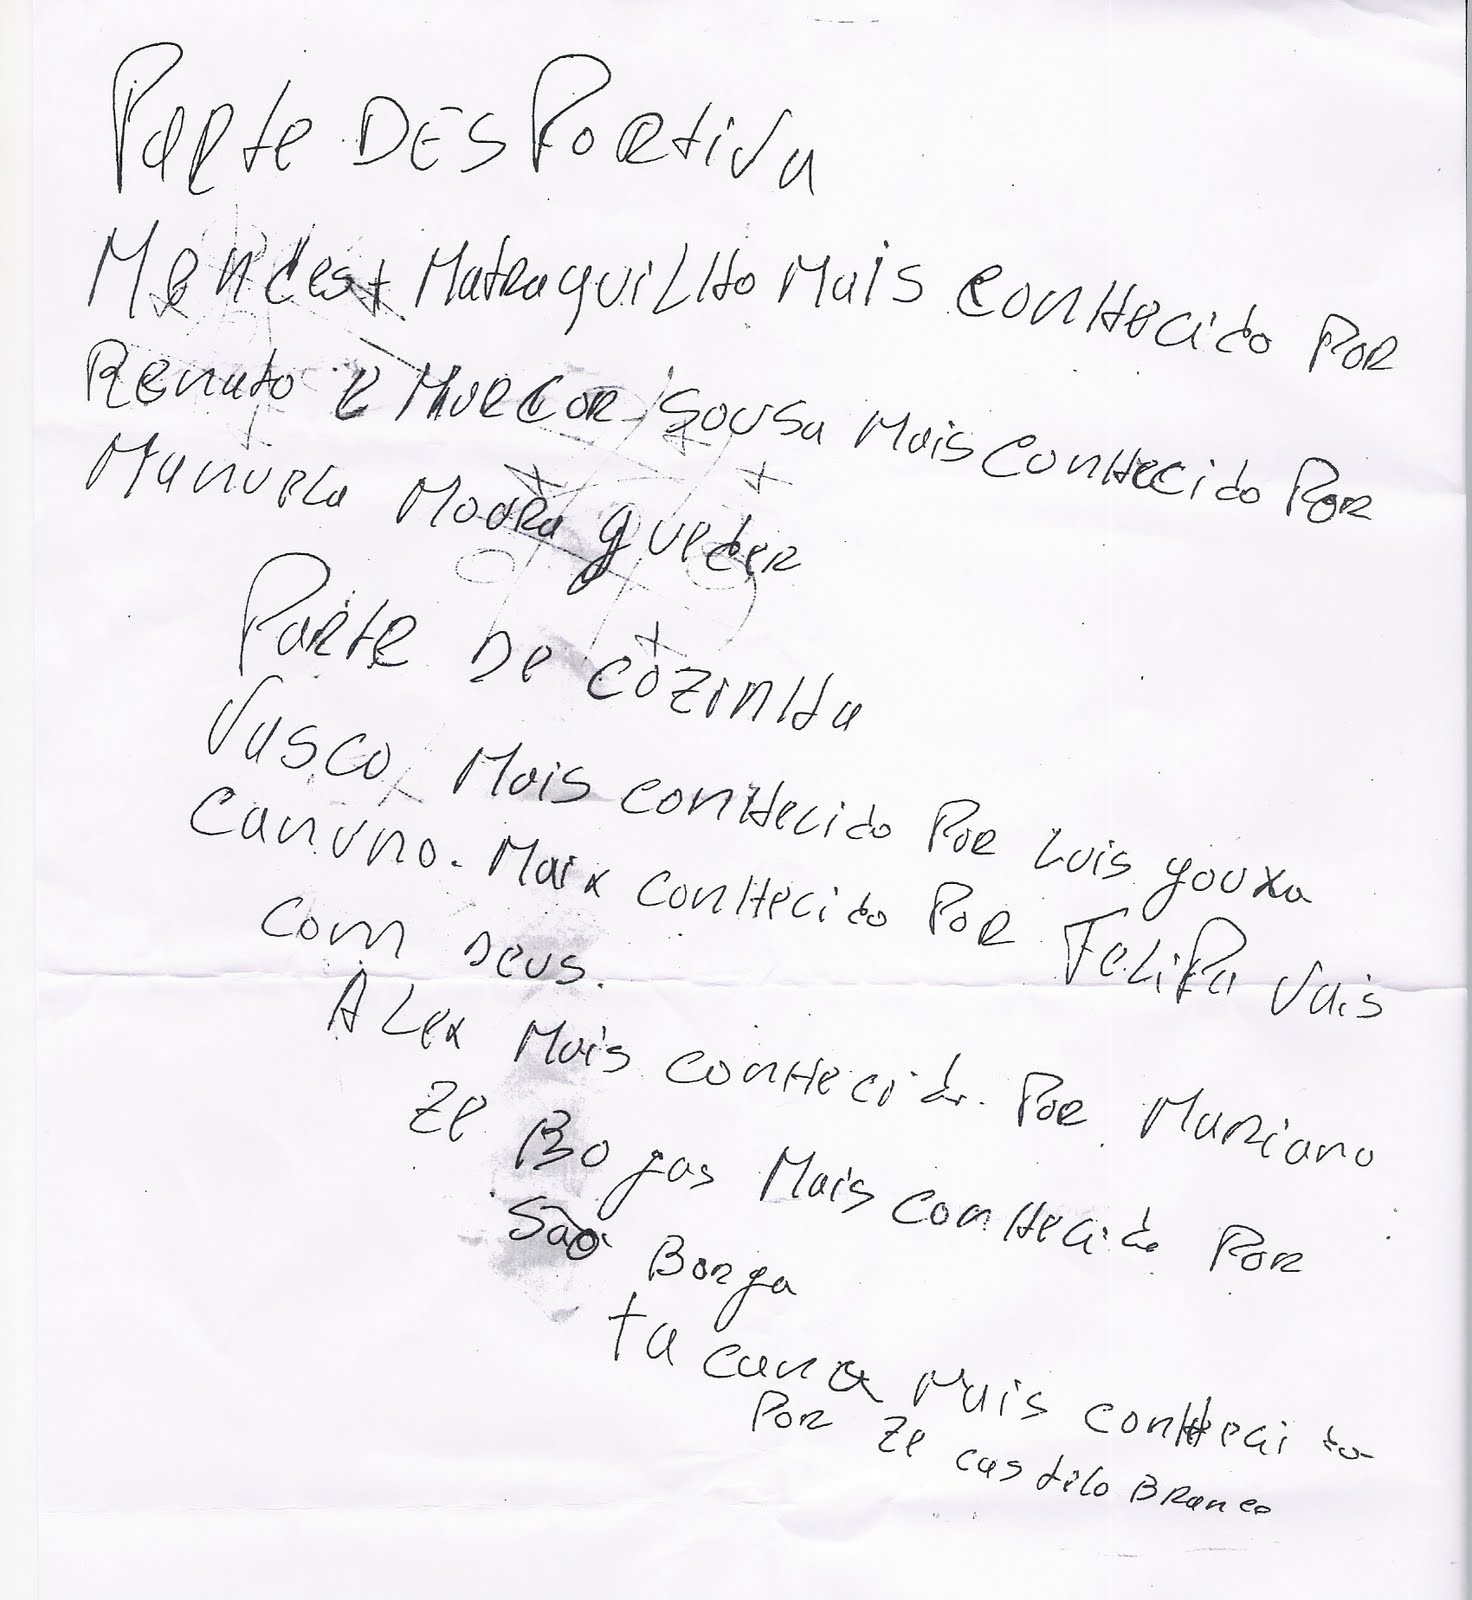 Parte DESPortiva
Mendes + MatraquilHo Mais conHecido Por
Renato e Marcor Sousa Mais conHecido Por
Manuela Moura gueder
Parte De cozinHa
Vasco Mais conHecido Por Luis gouxa
Canuno. Maix conHecido Por FeliPa Vais
com Deus.
ALex Mais conHecido. Por Mariano
Ze Bogas Mais conHecido Por
São Borga
ta cana Mais conHecido
Por Ze castelo Branco